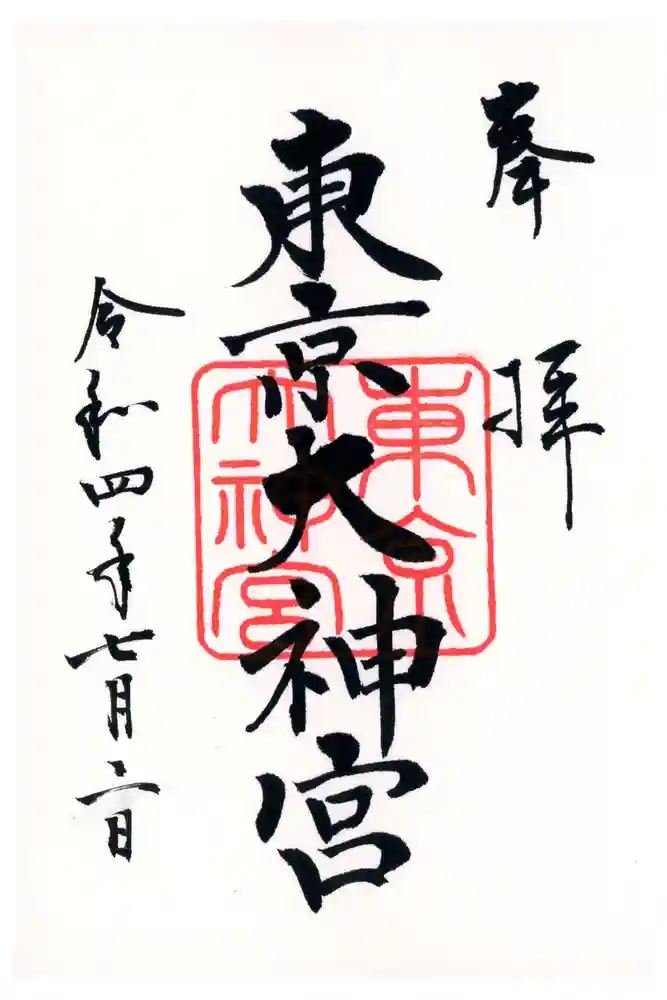 奉拝
東京大神宮
東京大神宮
令和四年七月二日